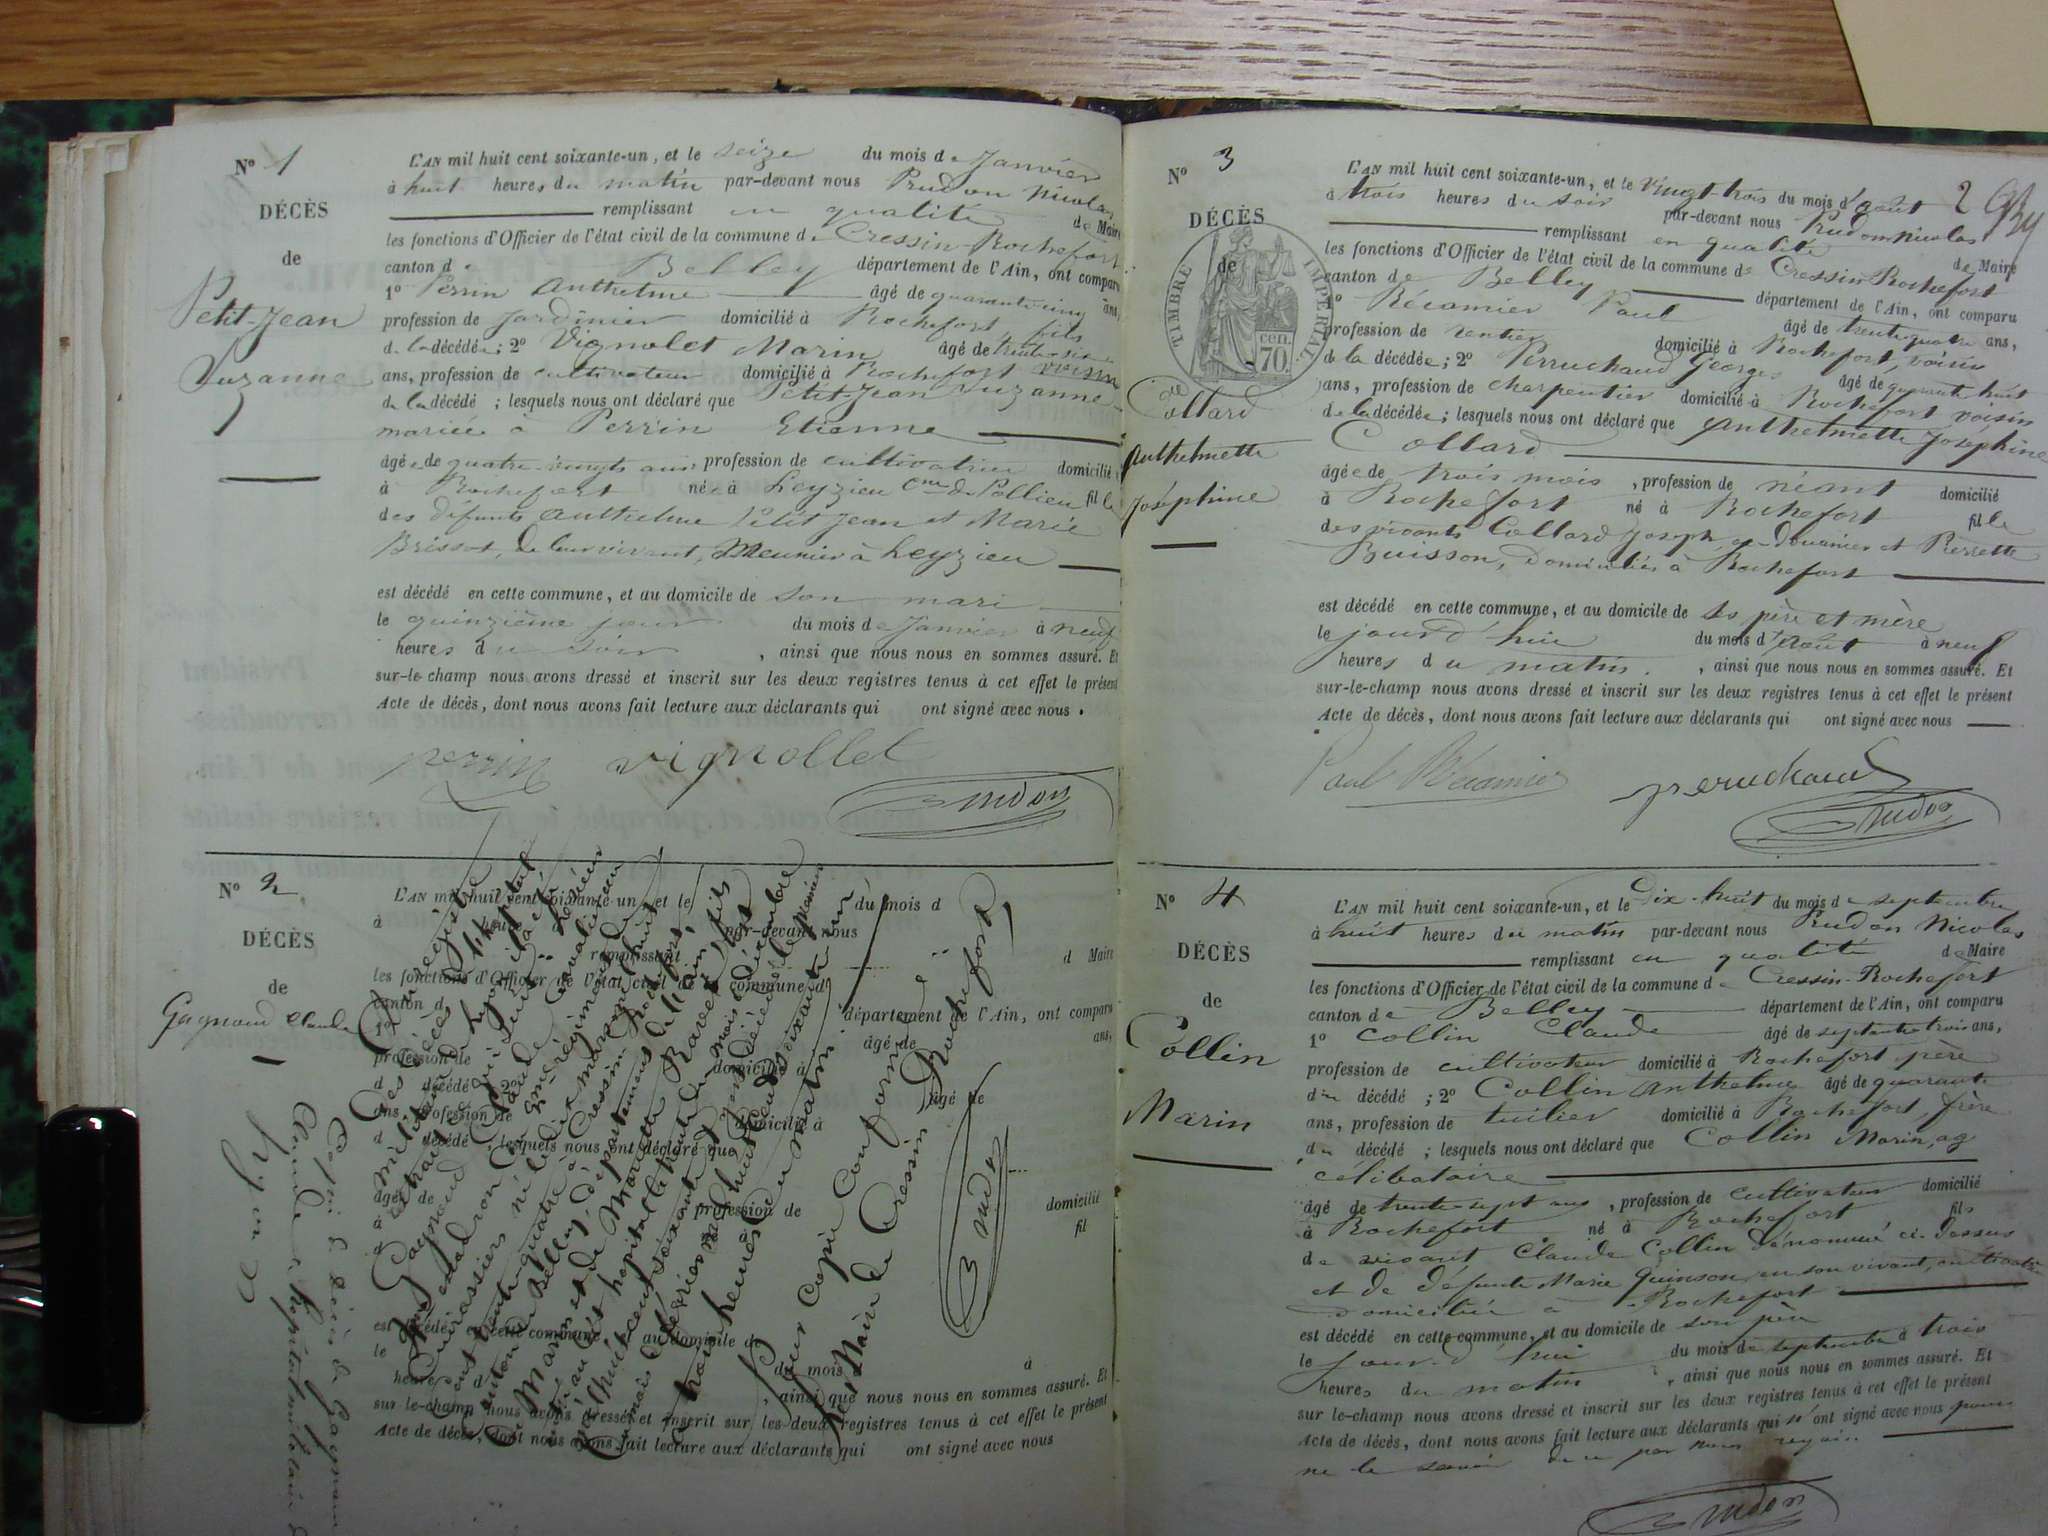 N° 1
DÉCÈS
de
Petit-Jean
Suzanne
L'AN mil huit cent soixante-un, et le seize du mois de Janvier
à huit heures du matin par-devant nous Prudon Nicolas
remplissant en qualité de Maire
les fonctions d'Officier de l'état civil de la commune de Cressin-Rochefort
canton de Belley département de l'Ain, ont comparu
1° Perrin Anthelme âgé de quarante cinq ans,
profession de Jardinier domicilié à Rochefort, fils
de la décédée; 2° Vignolet Marin âgé de trente
ans, profession de cultivateur domicilié à Rochefort voisin
de la décédé ; lesquels nous ont déclaré que Petit-Jean Suzanne
mariée à Perrin Etienne
âgée de quatre-vingts ans profession de cultivatrice domicilié
à Rochefort née à Leyzieu Cne de Pollieu fille
des défunts Anthelme Petit Jean et Marie
Brissot, de leur vivant, Meunier à Leyzieu
est décédé en cette commune, et au domicile de son mari
le quinzième jour du mois de Janvier à neuf
heures du soir , ainsi que nous nous en sommes assuré. Et
sur-le-champ nous avons dressé et inscrit sur les deux registres tenus à cet effet le présent
Acte de décès, dont nous avons fait lecture aux déclarants qui ont signé avec nous.
perrin vignollet
Prudon
N° 2
DÉCÈS
de
Gagnoud Claude
L'AN mil huit cent soixante-un, et le du mois d
à heures par-devant nous
remplissant d Maire
les fonctions d'Officier de l'état civil de la commune d
canton d département de l'Ain, ont comparu
1° âgé de ans,
profession de domicilié à
d décédé 2° âgé de
ans, profession de domicilié à
d décédé lesquels nous ont déclaré que
âgé de profession de domicilié
à fil
est décédé en cette commune au domicile de
le du mois à
heures d ainsi que nous nous en sommes assuré. Et
sur-le-champ nous avons dressé et inscrit sur les deux registres tenus à cet effet le présent
Acte de décès, dont nous avons fait lecture aux déclarants qui ont signé avec nous
Du registre
des décès de l'hopital
militaire de Lyon
Gagnoud Claude Cavalier au
escadron 2me régiment de
Cuirassiers né le dix mars mil huit
cent trente-quatre à Cressin Rochefort,
canton de Belley, département de l'Ain, fils
de Marin et de
au dit hopital le trente du mois décembre
mil huit cent soixante
à trois heures du matin
Pour copie conforme
Le Maire de Cressin Rochefort
Prudon
Copie de décès de Gagnoud
Claude hopital militaire de
Lyon
N° 3
DÉCÈS
de
TIMBRE IMPÉRIAL
70 cen.
Collard
Anthelmette
Joséphine
L'AN mil huit cent soixante-un, et le vingt-trois du mois d'août
à trois heures du soir par-devant nous Prudon Nicolas
remplissant en qualité de Maire
les fonctions d'Officier de l'état civil de la commune de Cressin Rochefort
canton de Belley département de l'Ain, ont comparu
1° Récamier Paul âgé de trente quatre ans,
profession de rentier domicilié à Rochefort, voisin
de la décédée; 2° Perruchaud Georges âgé de quarante huit
ans, profession de charpentier domicilié à Rochefort voisin
de la décédée; lesquels nous ont déclaré que Anthelmette Joséphine
Collard
âgée de trois mois, profession de néant domicilié
à Rochefort né à Rochefort fille
des vivants Collard Joseph, ex-douanier et Pierrette
Buisson, domiciliés à Rochefort
est décédé en cette commune, et au domicile de ses père et mère
le jourd'hui du mois d'Août à neuf
heures du matin , ainsi que nous nous en sommes assuré. Et
sur-le-champ nous avons dressé et inscrit sur les deux registres tenus à cet effet le présent
Acte de décès, dont nous avons fait lecture aux déclarants qui ont signé avec nous
Paul Récamier perruchaud
Prudon
N° 4
DÉCÈS
de
Collin
Marin
L'AN mil huit cent soixante-un, et le dix-huit du mois de septembre
à huit heures du matin par-devant nous Prudon Nicolas
remplissant en qualité de Maire
les fonctions d'Officier de l'état civil de la commune de Cressin-Rochefort
canton de Belley département de l'Ain, ont comparu
1° Collin Claude âgé de septante trois ans,
profession de cultivateur domicilié à Rochefort père
du décédé ; 2° Collin Anthelme âgé de quarante
ans, profession de tuilier domicilié à Rochefort, frère
du décédé ; lesquels nous ont déclaré que Collin Marin,
célibataire
âgé de trente sept ans, profession de cultivateur domicilié
à Rochefort né à Rochefort fils
de vivant Claude Collin dénommé ci-dessus
et de défunte Marie Guinson, en son vivant, cultivatrice
domiciliée à Rochefort
est décédé en cette commune, et au domicile de son père
le jourd'hui du mois de septembre à trois
heures du matin , ainsi que nous nous en sommes assuré. Et
sur-le-champ nous avons dressé et inscrit sur les deux registres tenus à cet effet le présent
Acte de décès, dont nous avons fait lecture aux déclarants qui n'ont signé avec nous pour
ne le savoir de ce par nous requis
Prudon